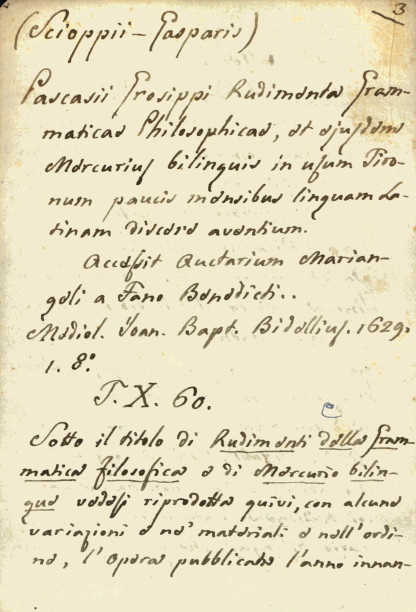 3
(Scioppii - Gasparis)
Pascasii Grosippi Rudimenta Gram-
maticae Philosophicae, et ejusdem
Mercurius bilinguis in usum Tiro-
num paucis mensibus linguam La-
tinam discere aventium.
Accessit Auctarium Marian-
geli a Fano Benedicti..
Mediol. Ioan. Bapt. Bidellius. 1629.
1. 8.°
T. X. 60.
Sotto il titolo di Rudimenti della Gram-
matica filosofica e di Mercurio bilin-
gue vedesi riprodotta quivi, con alcune
variazioni e ne' materiali e nell'ordi-
ne, l'Opera pubblicata l'anno innan-